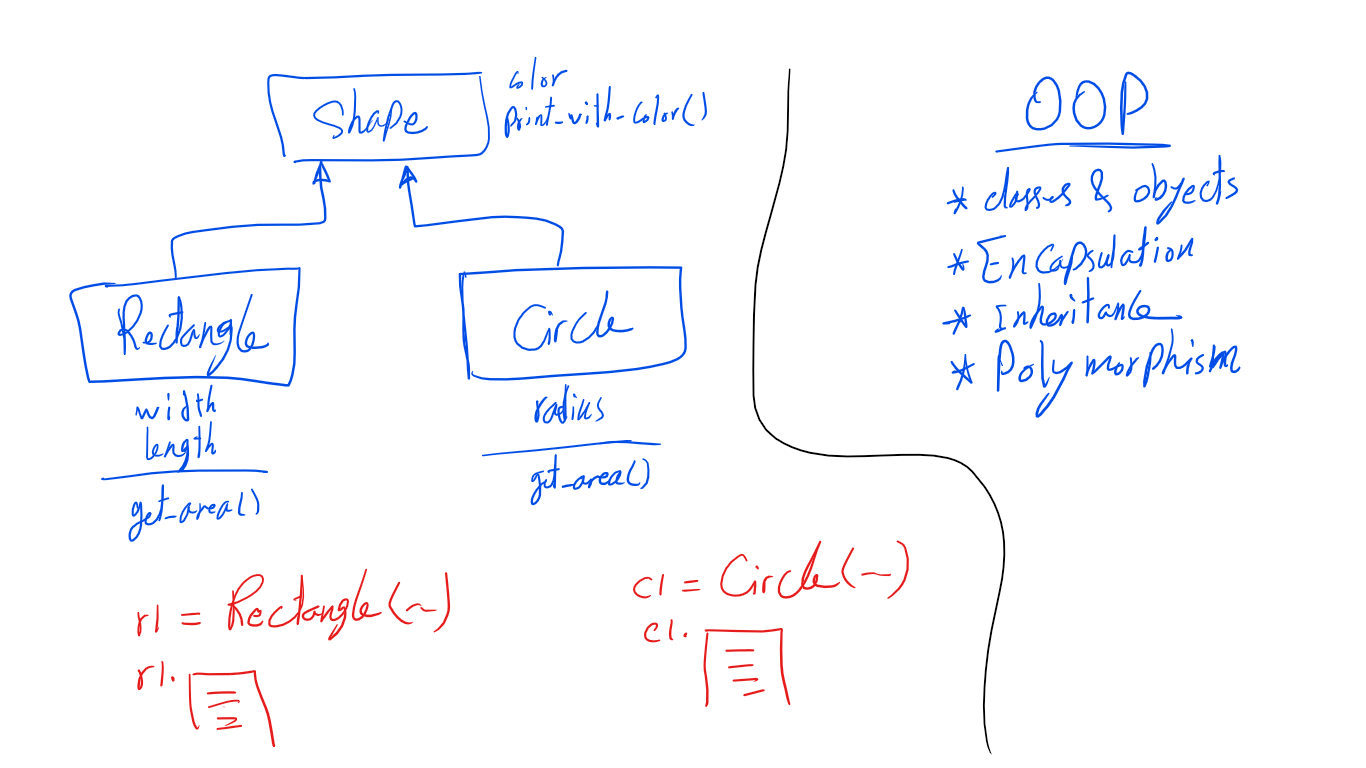 Shape
color
Print_with_color()
Rectangle
width
length
get_area()
Circle
radius
get_area()
r1 = Rectangle(~)
r1.
c1 = Circle(~)
c1.
OOP
* classes & objects
* Encapsulation
* Inheritance
* Polymorphism